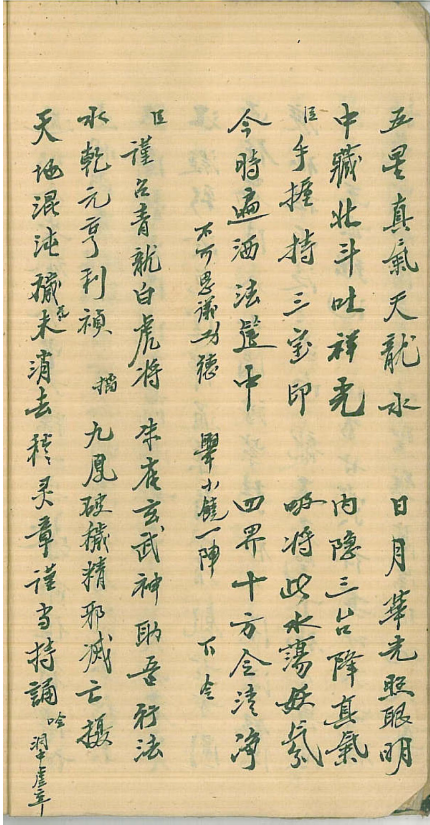 五星真氣天龍水　日月華光照眼明
中藏北斗吐祥光　內隱三台降真氣
臣手握持三宝印　吸将此水蕩妖氛
今時遍洒法筵中　四界十方令清净
不可思議功德　舉小鐃一陣　下仝
臣謹召青龍白虎将　朱雀玄武神助吾行法
水乾元亨利禎　九鳳破穢精邪滅亡攝
天地混沌穢炁未消去稽灵章謹当持誦